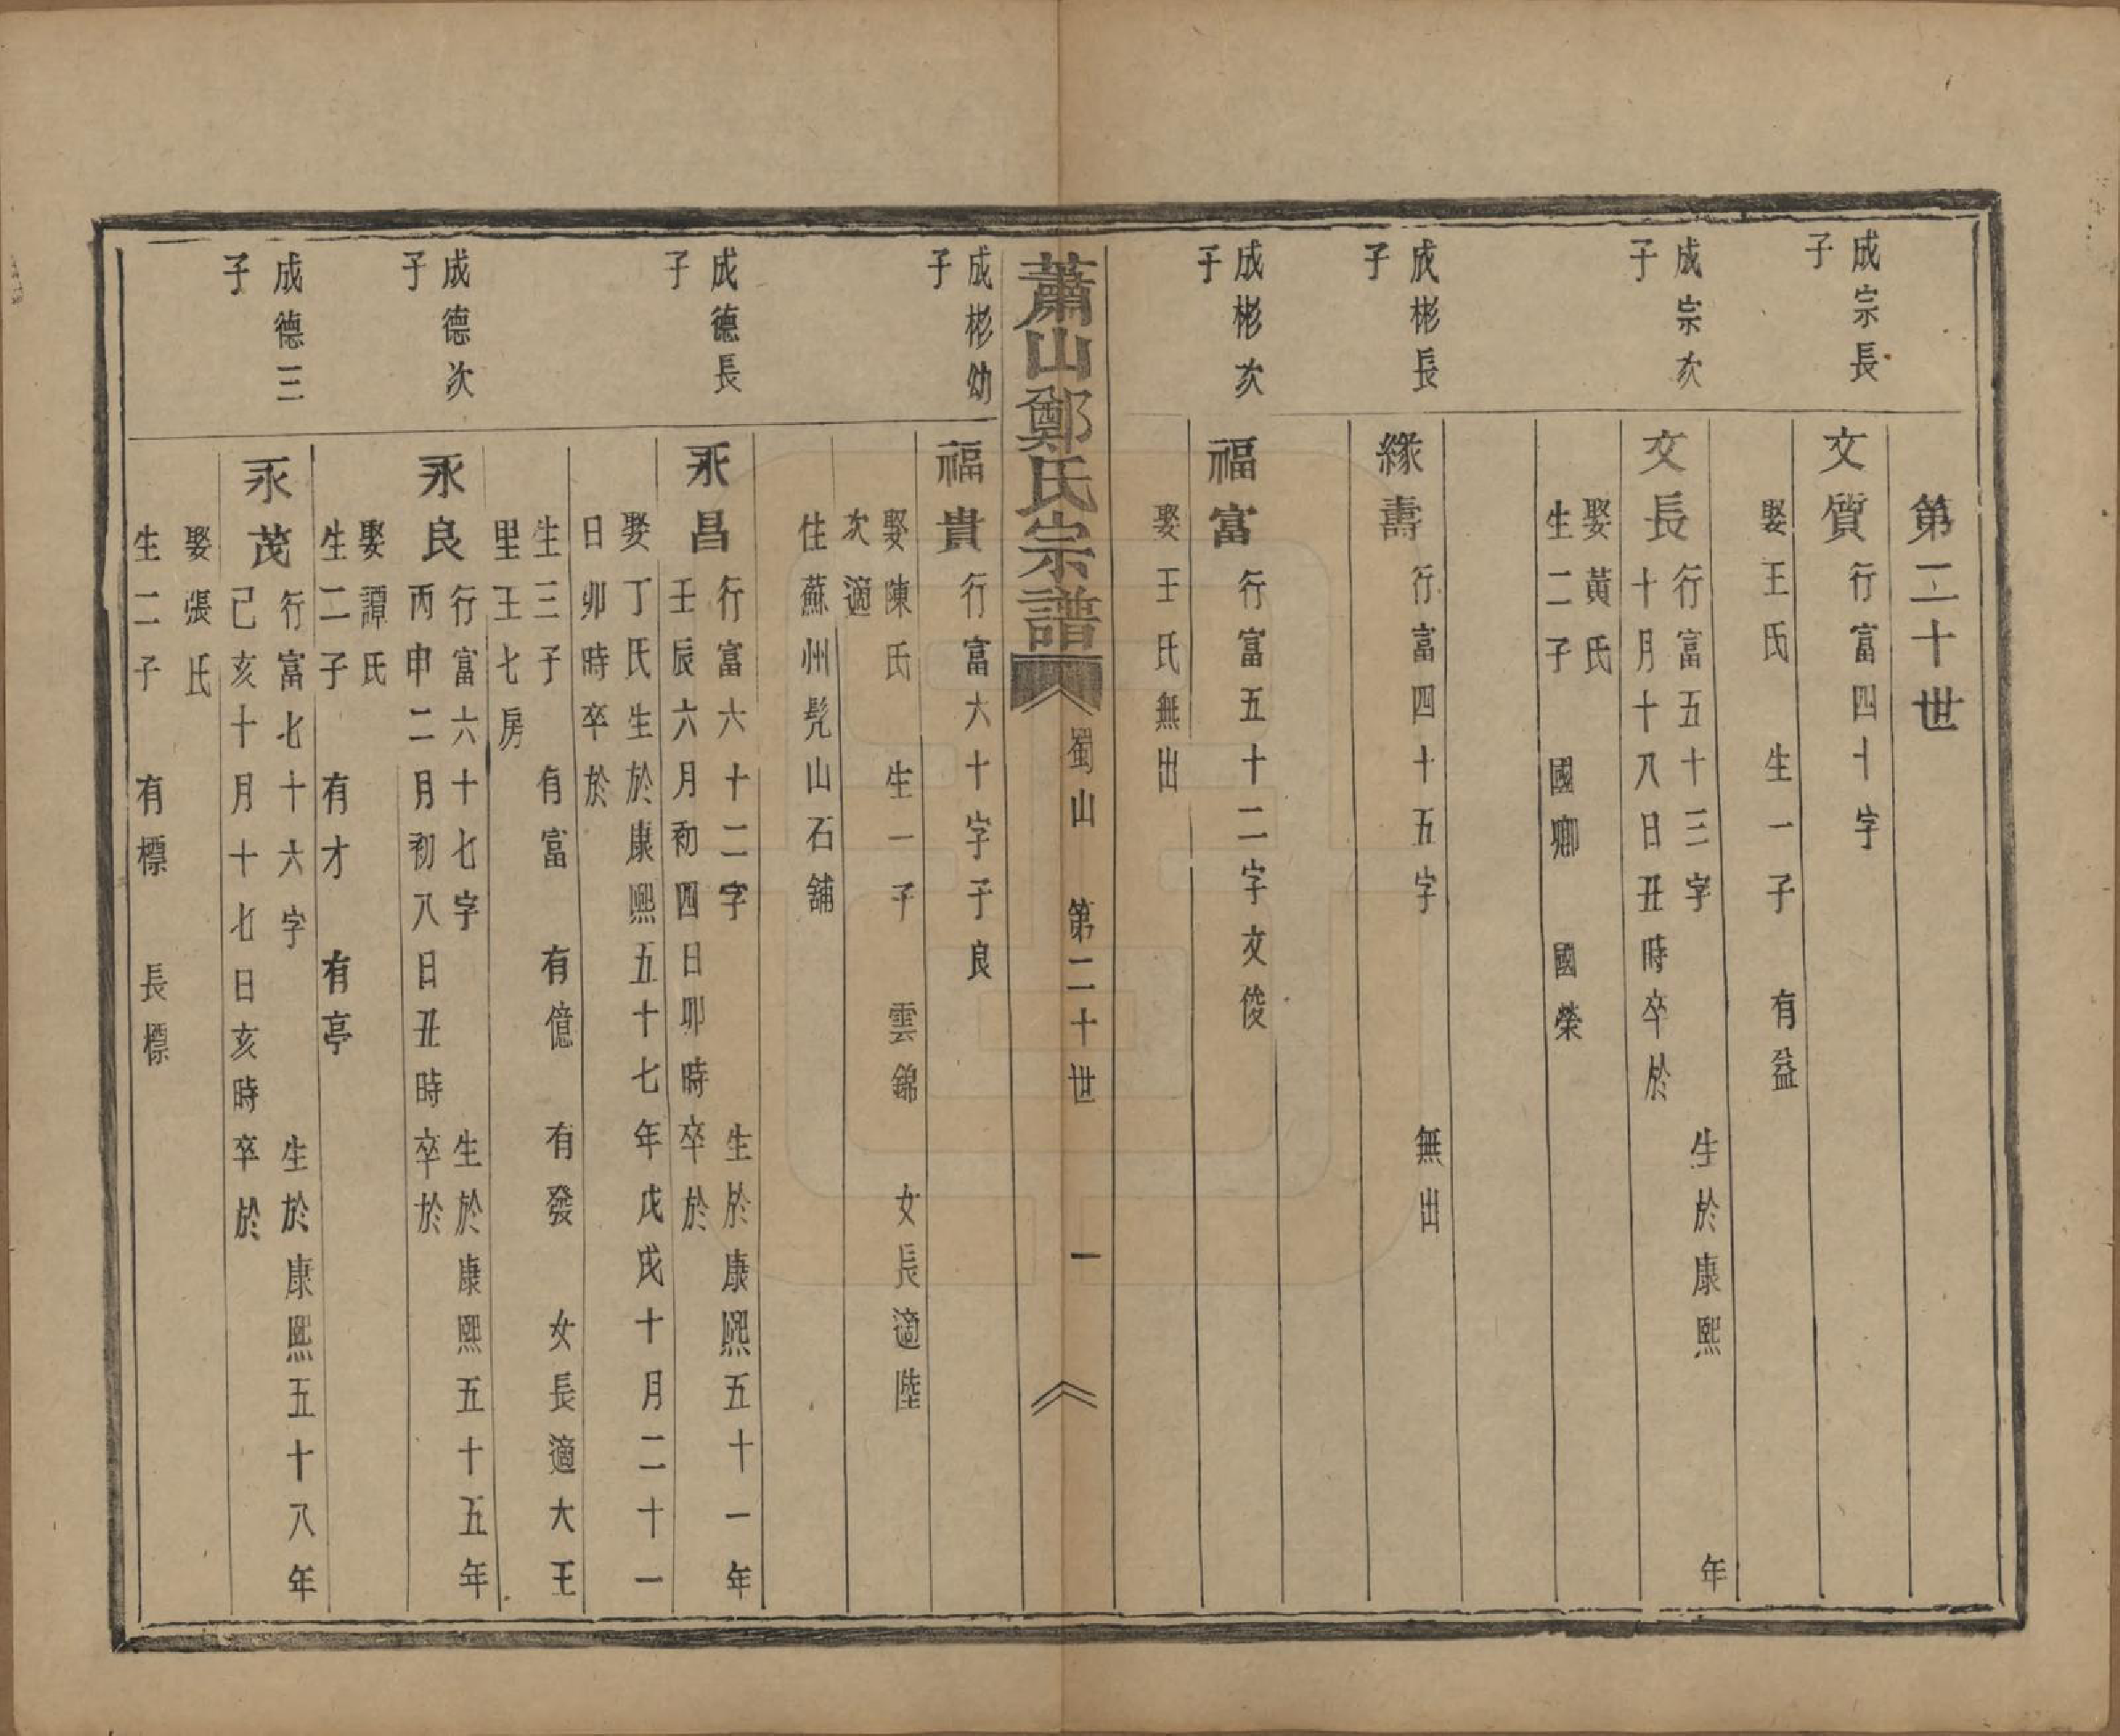 第二十世
成宗長
子
文質
行富四十字
娶王氏 生一子 有益
成宗次
子
文長
行富五十三字 生於康熙 年
十月十八日丑時卒於
娶黃氏
生二子 國卿 國榮
成彬長
子
緣壽
行富四十五字 無出
成彬次
子
福富
行富五十二字文俊
娶王氏無出
蕭山鄭氏宗譜
蜀山 第二十世 一
成彬幼
子
福貴
行富六十字子良
娶陳氏 生一子 雲錦 女長適陸
次適
住蘇州髡山石舖
成德長
子
永昌
行富六十二字 生於康熙五十一年
壬辰六月初四日卯時卒於
娶丁氏生於康熙五十七年戊戌十月二十一
日卯時卒於
生三子 有富 有億 有發 女長適大王
里王七房
成德次
子
永良
行富六十七字 生於康熙五十五年
丙申二月初八日丑時卒於
娶譚氏
生二子 有才 有亭
成德三
子
永茂
行富七十六字 生於康熙五十八年
己亥十月十七日亥時卒於
娶張氏
生二子 有標 長標